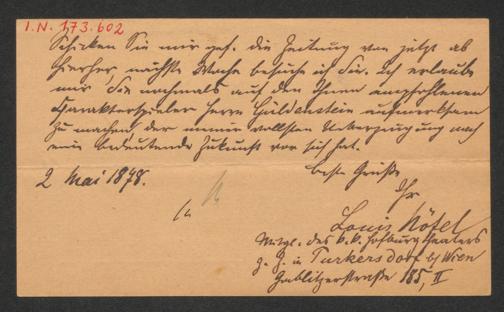 I.N. 173.602
Schicken Sie mir gef. die Zeitung von jetzt ab
hierher nächste Woche besuche ich Sie. Ich erlaube
mir Sie nochmals auf den Ihnen empfohlenen
Charakterspieler Herrn Güldenstein aufmerksam
zu machen, der meiner vollsten Ueberzeugung nach
eine bedeutende Zukunft vor sich hat.
beste Grüße
2 Mai 1898.
Ihr
Louis Nötel
Mitgl. des k.k. Hofburgtheaters
z. Z. in Purkersdorf b/ Wien
Gablitzerstraße 185, II